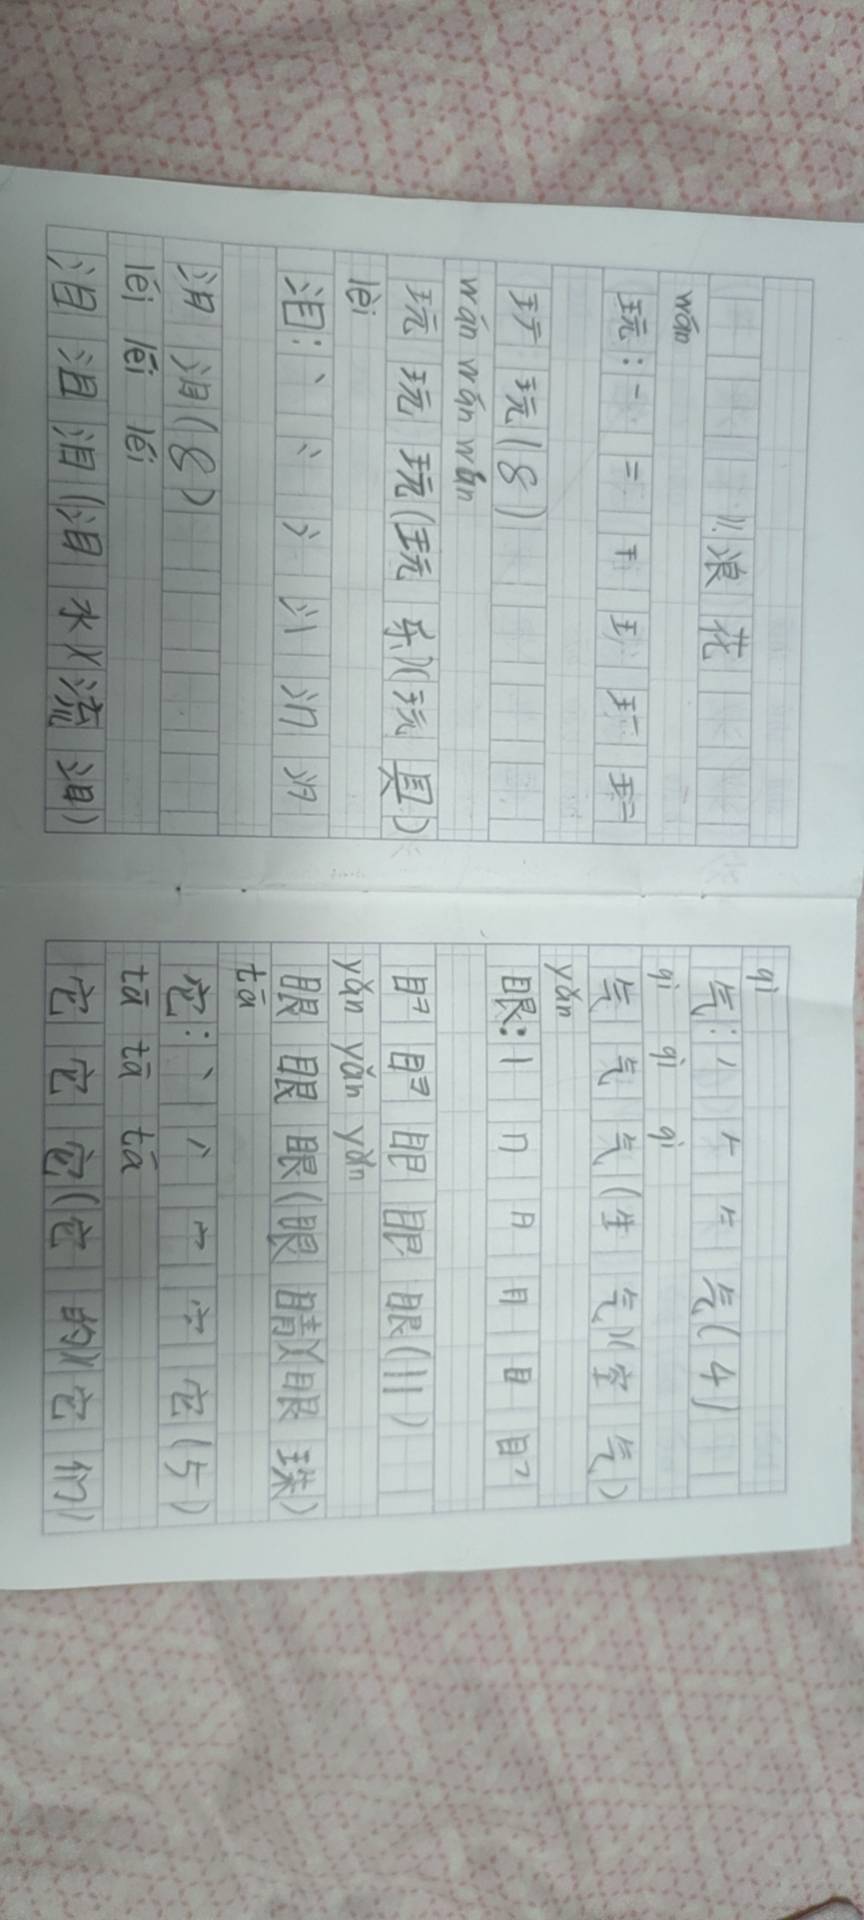 11.浪花
wán
玩:一 二 千 王 王一 王二
玩 玩(8)
wán wán wán
玩 玩 玩(玩 乐)(玩 具)
lèi
泪:丶 冫 氵 氵丨 汈 汈
泪 泪(8)
lèi lèi lèi
泪 泪 泪(泪 水)(流 泪)
qì
气:丿 𠂉 气(4)
qì qì qì
气 气 气(生 气)(空 气)
yǎn
眼:丨 冂 月 月 目 目フ
眼(11)
yǎn yǎn yǎn
眼 眼 眼(眼 睛)(眼 珠)
tā
它:丶 丷 宀 它(5)
tā tā tā
它 它 它(它 的)(它 们)